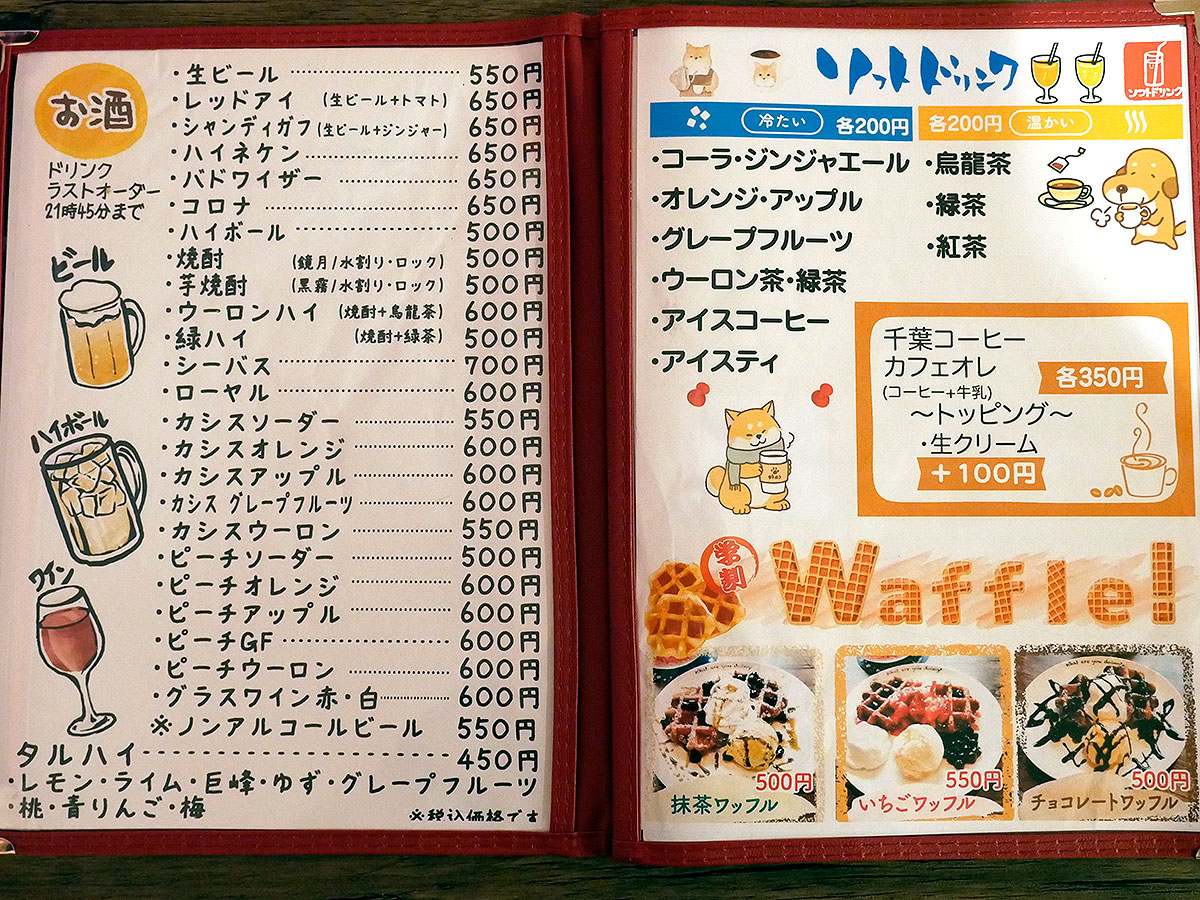 お酒
ドリンク
ラストオーダー
21時45分まで
ビール
ハイボール
ワイン
・生ビール 550円
・レッドアイ (生ビール+トマト) 650円
・シャンディガフ(生ビール+ジンジャー) 650円
・ハイネケン 650円
・バドワイザー 650円
・コロナ 650円
・ハイボール 500円
・焼酎 (鏡月/水割り・ロック) 500円
・芋焼酎 (黒霧/水割り・ロック) 500円
・ウーロンハイ (焼酎+烏龍茶) 600円
・緑ハイ (焼酎+緑茶) 500円
・シーバス 700円
・ローヤル 600円
・カシスソーダー 550円
・カシスオレンジ 600円
・カシスアップル 600円
・カシス グレープフルーツ 600円
・カシスウーロン 550円
・ピーチソーダー 500円
・ピーチオレンジ 600円
・ピーチアップル 600円
・ピーチGF 600円
・ピーチウーロン 600円
・グラスワイン赤・白 600円
※ノンアルコールビール 550円
タルハイ 450円
・レモン・ライム・巨峰・ゆず・グレープフルーツ
・桃・青りんご・梅
※税込価格です
ソフトドリンク
ソフトドリンク
冷たい 各200円
各200円 温かい
・コーラ・ジンジャエール
・オレンジ・アップル
・グレープフルーツ
・ウーロン茶・緑茶
・アイスコーヒー
・アイスティ
・烏龍茶
・緑茶
・紅茶
千葉コーヒー
カフェオレ
(コーヒー+牛乳)
各350円
〜トッピング〜
・生クリーム
+100円
学割
Waffle!
500円
抹茶ワッフル
550円
いちごワッフル
500円
チョコレートワッフル